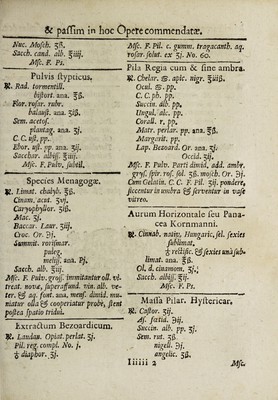 & passim in hoc Opere commendatæ.
Nuc. Mosch. ʒß.
Sacch. cand. alb. ℥iiij.
Msc. F. Ps.
Pulvis stypticus.
℞. Rad. tormentill.
bistort. ana. ℥ß.
Flor. rosar. rubr.
balaust. ana. ℥iß.
Sem. acetos.
plantag. ana. ʒj.
C. C. ust. pp.
Ebor. ust. pp. ana. ʒij.
Sacchar. albiss. ℥iiij.
Msc. F. Pulv. subtil.
Species Menagogæ.
℞. Limat. chalyb. ℥ß.
Cinam. acut. ʒvj.
Caryophyllor. ʒiß.
Mac. ʒj.
Baccar. Laur. ʒiij.
Croc. Or. ℈j.
Summit. rorismar.
puleg.
meliss. ana. Pj.
Sacch. alb. ℥iij.
Msc. F. Pulv. gross. immittantur oll. vitreat. novæ, superaffund. vin. alb. veter. ℔ aq. font. ana. mens. dimid. muniatur olla & cooperiatur probe, stent postea spatio tridui.
Extractum Bezoardicum.
℞. Laudan. Opiat. perlat. ʒj.
Pil. reg. compl. No. j.
♁ diaphor. ʒj.
Msc. F. Pil. c. gumm. tragacanth. aq. rosar. solut. ex ʒj. No. 60.
Pila Regia cum & sine ambra.
℞. Chelar. ♋. apic. nigr. ℥iiiß.
Ocul. ♋. pp.
C. C. ph. pp.
Succin. alb. pp.
Ungul. alc. pp.
Corall. r. pp.
Matr. perlar. pp. ana. ℥ß.
Margarit. pp.
Lap. Bezoard. Or. ana. ʒj.
Occid. ʒij.
Msc. F. Pulv. Parti dimid. add. ambr. grys. spir. ros. sol. ʒß. mosch. Or. ℈j.
Cum Gelatin. C. C. F. Pil. ʒij. pondere, siccentur in umbra & serventur in vase vitreo.
Aurum Horizontale seu Panacea Kornmanni.
℞. Cinnab. nativ. Hungaric. sel. sexies sublimat.
☿ rectific. & sexies una sublimat. ana. ℥ß.
Ol. d. cinamom. ʒj.
Sacch. albiss. ℥ij.
Msc. F. Ps.
Massa Pilar. Hystericar.
℞. Castor. ʒij.
As. fœtid. ℈ij.
Succin. alb. pp. ʒj.
Sem. rut. ℥ß.
nigell. ℈j.
angelic. ℥ß.
Iiiiii 2 Msc.